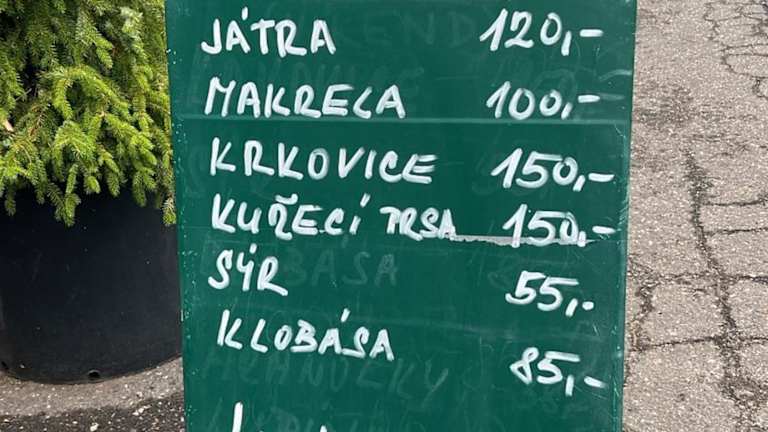 JÁTRA 120,-
MAKRELA 100,-
KRKOVICE 150,-
KUŘECÍ PRSA 150,-
SÝR 55,-
KLOBÁSA 85,-